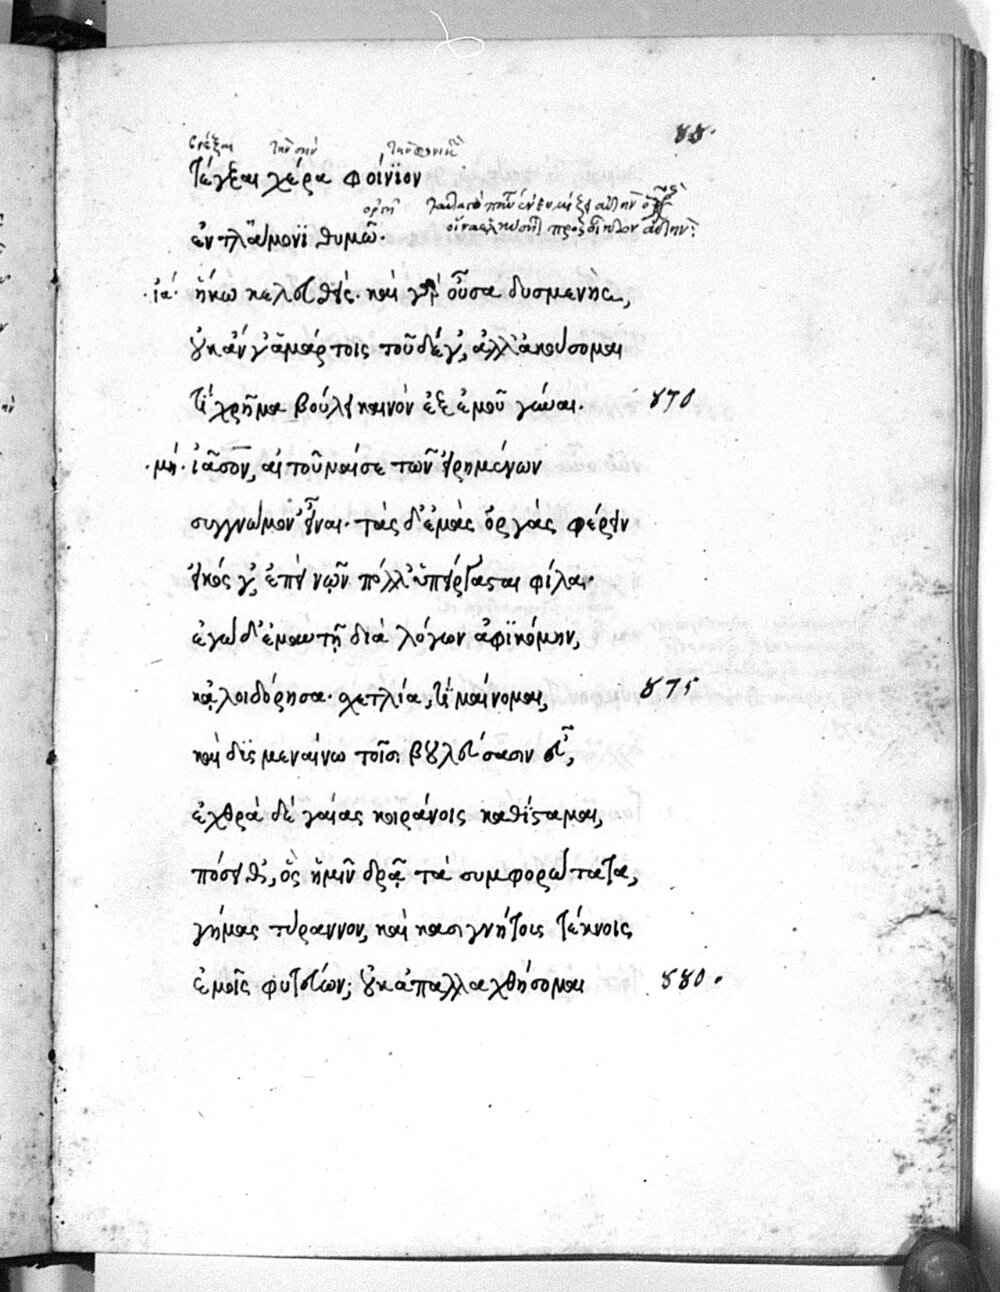 55.
βρέξαι τὴν σὴν τὴν φονικὴν
τέγξαι χέρα φοίνιον
ὀργῇ
ἐν τλάμονϊ θυμῷ.
·ἰά· ἥκω κελευσθείς· καὶ γὰρ οὖσα δυσμενὴς,
οὐκ ἂν γ' ἁμάρτοις τοῦδέ γ', ἀλλ' ἀκούσομαι
τί χρῆμα βούλει καινὸν ἐξ ἐμοῦ γύναι. 870
·μή· ἰᾶσον, αἰτοῦμαί σε τῶν εἰρημένων
συγγνώμον' εἶναι· τὰς δ' ἐμὰς ὀργὰς φέρειν
εἰκός γ', ἐπεὶ νῷν πόλλ' ὑπείργασται φίλα·
ἐγὼ δ' ἐμαυτῇ διὰ λόγων ἀφϊκόμην,
κἀλοιδόρησα· σχετλία, τί μαίνομαι, 875
καὶ δυσμεναίνω τοῖσι βουλεύουσιν εὖ,
ἐχθρὰ δὲ γαίας κοιράνοις καθίσταμαι,
πόσει θ', ὃς ἡμῖν δρᾷ τὰ συμφορώτατα,
γήμας τύραννον, καὶ κασιγνήτοις τέκνοις
ἐμοῖς φυτεύων; οὐκ ἀπαλλαχθήσομαι 880.